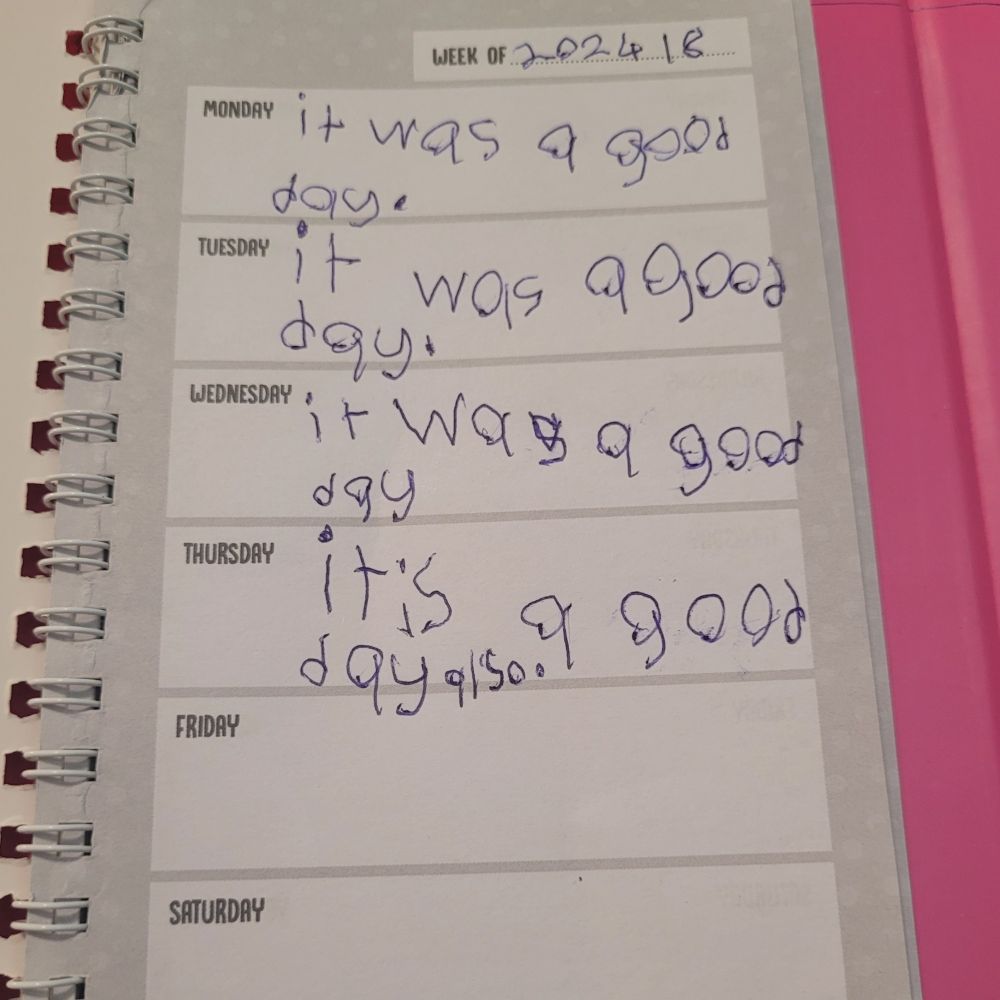 WEEK OF 2024 18
MONDAY it was a good
day.
TUESDAY it was a good
day.
WEDNESDAY it was a good
day
THURSDAY it's a good
day also.
FRIDAY
SATURDAY